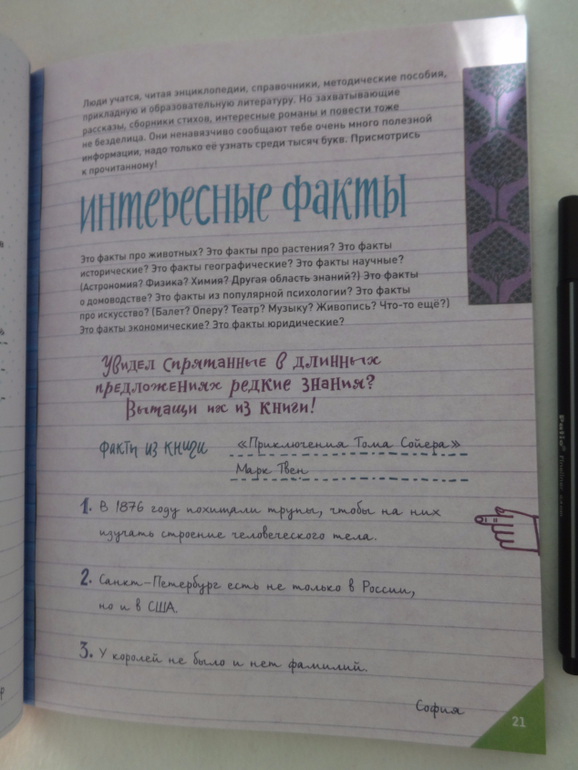 Люди учатся, читая энциклопедии, справочники, методические пособия,
прикладную и образовательную литературу. Но захватывающие
рассказы, сборники стихов, интересные романы и повести тоже
не безделица. Они ненавязчиво сообщают тебе очень много полезной
информации, надо только её узнать среди тысяч букв. Присмотрись
к прочитанному!
ИНТЕРЕСНЫЕ ФАКТЫ
Это факты про животных? Это факты про растения? Это факты
исторические? Это факты географические? Это факты научные?
(Астрономия? Физика? Химия? Другая область знаний?) Это факты
о домоводстве? Это факты из популярной психологии? Это факты
про искусство? (Балет? Оперу? Театр? Музыку? Живопись? Что-то ещё?)
Это факты экономические? Это факты юридические?
Увидел спрятанные в длинных
предложениях редкие знания?
Вытащи их из книги!
факты из книги «Приключения Тома Сойера»
Марк Твен
1. В 1876 году похищали трупы, чтобы на них
изучать строение человеческого тела.
2. Санкт-Петербург есть не только в России,
но и в США.
3. У королей не было и нет фамилий.
София
21